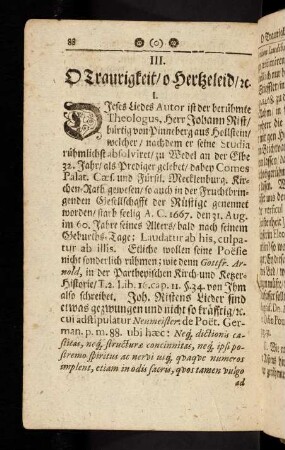 88 (o)
III.
O Traurigkeit/ o Hertzeleid/ ꝛc.
I.
DIeses Liedes Autor ist der berühmte
Theologus, Herr Johann Rist/
bürtig von Pinneberg aus Hollstein/
welcher/ nachdem er seine Studia
rühmlichst absolviret/ zu Wedel an der Elbe
32. Jahr/ als Prediger gelebet/ dabey Comes
Palat. Cæs. und Fürstl. Mecklenburg. Kir-
chen-Rath gewesen/ so auch in der Fruchtbrin-
genden Gesellschafft der Rüstige genennet
worden/ starb seelig A. C. 1667. den 31. Aug.
im 60. Jahr seines Alters/ bald nach seinem
Geburths-Tage; Laudatur ab his, culpa-
tur ab illis. Etliche wollen seine Poësie
nicht sonderlich rühmen/ wie denn Gottfr. Ar-
nold, in der Partheyischen Kirch- und Ketzer-
Historie/ T. 2. Lib. 16. cap. 11. §. 34. von Ihm
also schreibet. Joh. Ristens Lieder sind
etwas gezwungen und nicht so kräfftig/ ꝛc.
cui adstipulatur Neumeister. de Poët. Ger-
man. p. m. 88. ubi hæc: Neq; dictionis ca-
stitas, neq; structuræ concinnitas, neq; ipsi po-
stremo spiritus ac nervi usq; quaque numeros
implent, etiam in odis sacris, quos tamen vulgo
ad